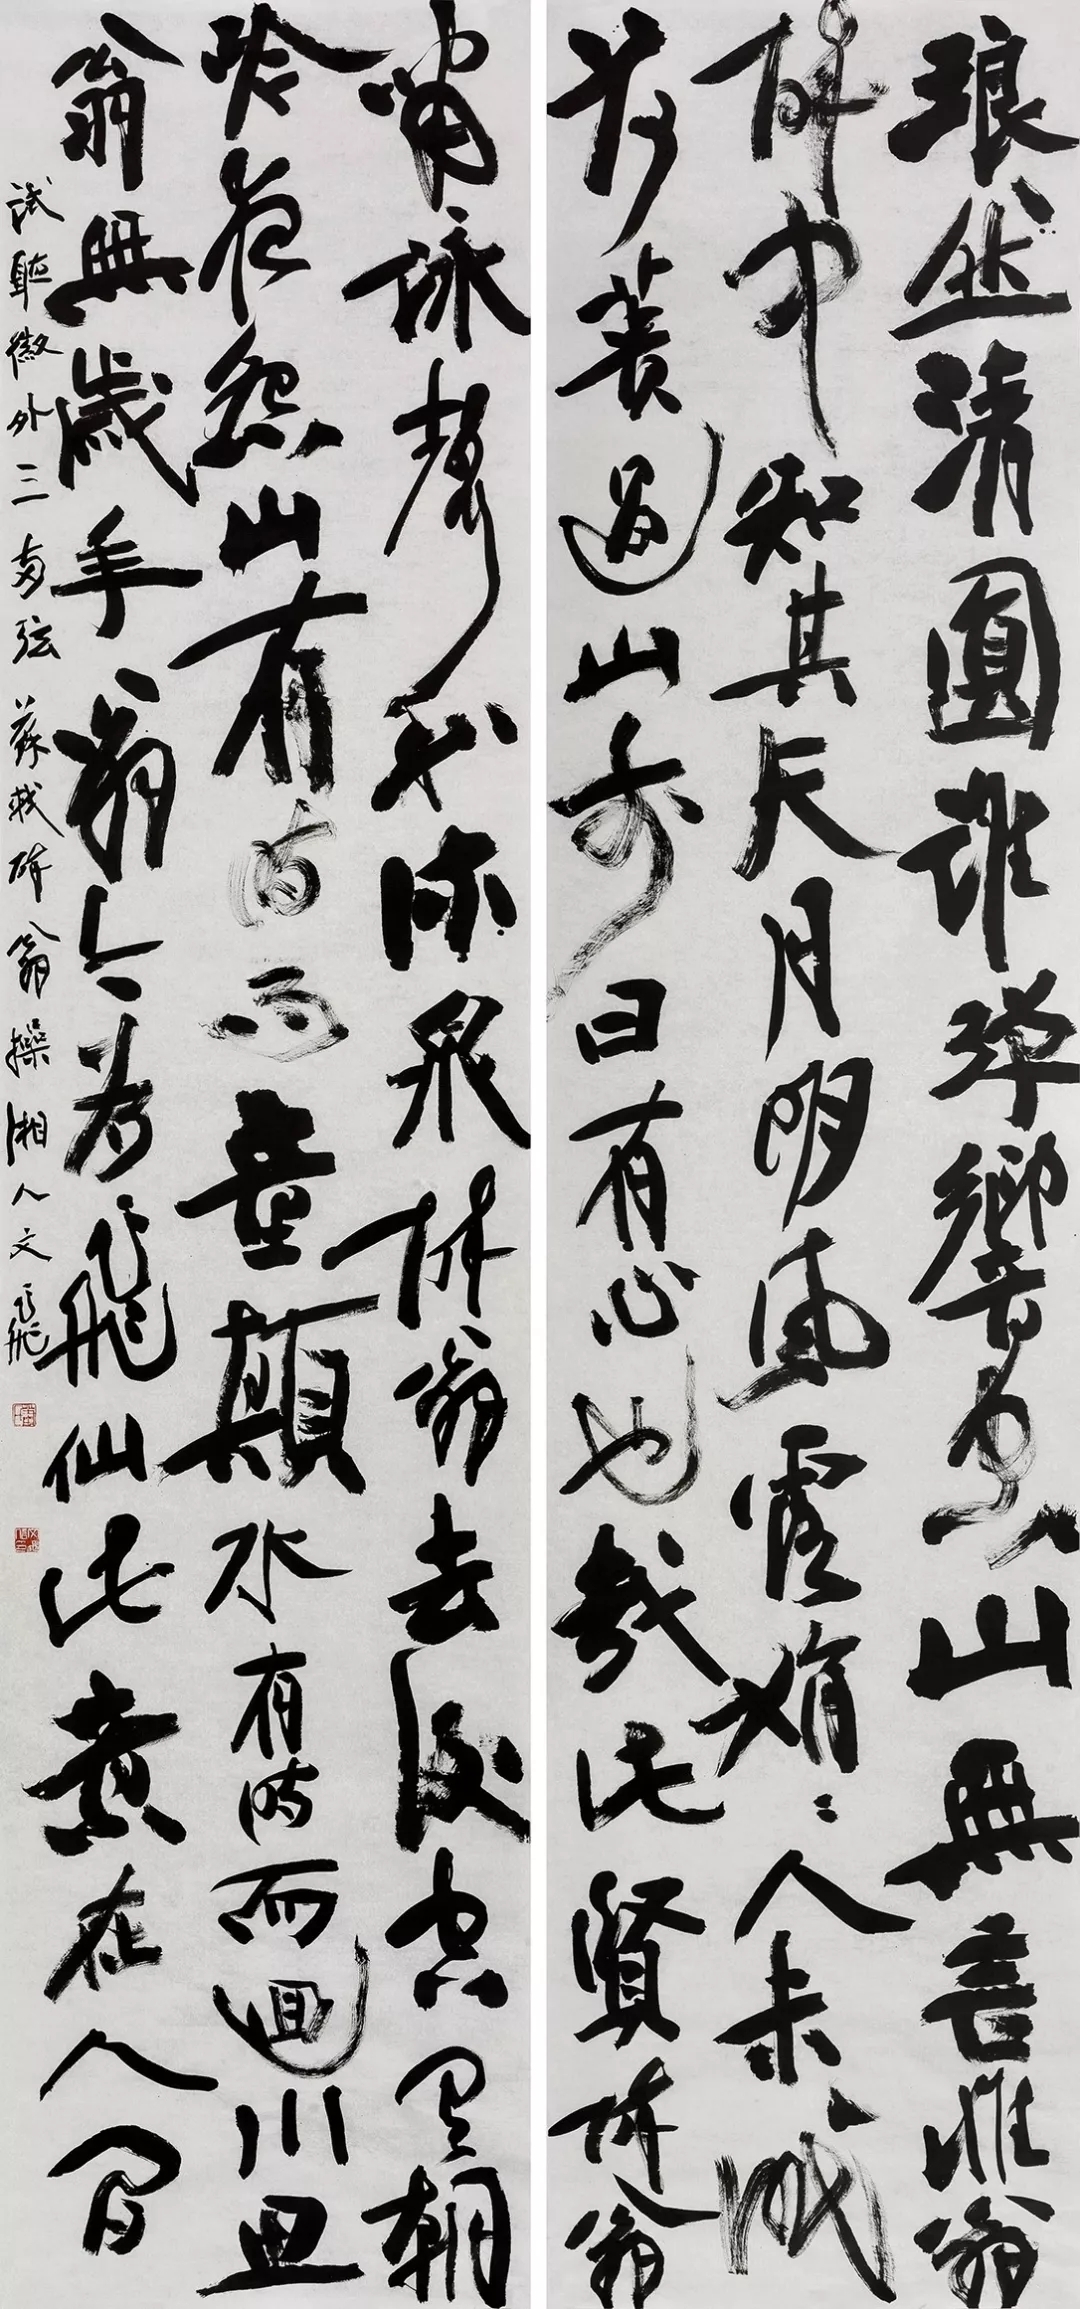 琅然清圓誰彈響空山無言惟翁
醉中知其天月明風露娟〻人未眠
荷蕢過山前曰有心也哉此賢醉翁
嘯詠聲和流泉醉翁去後空有朝
吟夜怨山有時而童顛水有時而迴川思
翁無歲年翁今為飛仙此意在人間
試聽徽外三兩弦 蘇軾醉翁操 湘人文飛